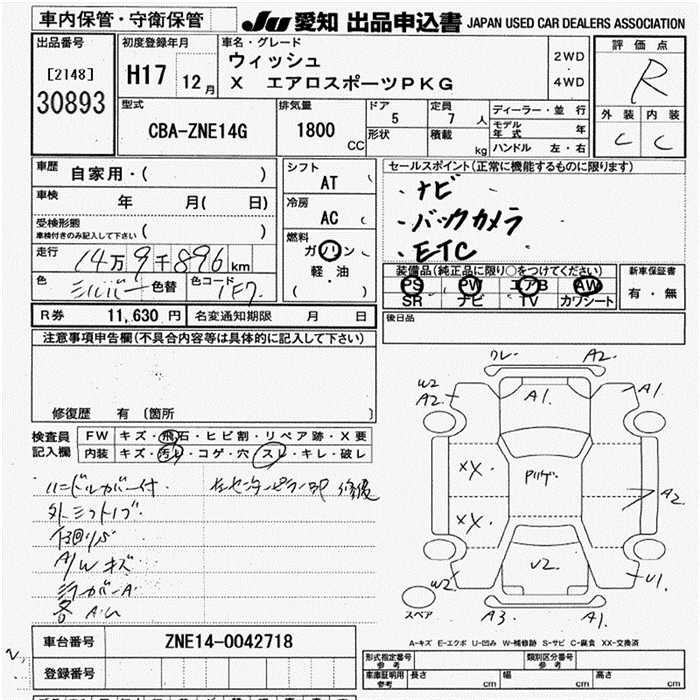 車内保管・守衛保管
JU 愛知 出品申込書 JAPAN USED CAR DEALERS ASSOCIATION
出品番号
[2148]
30893
初度登録年月
H17 12月
車名・グレード
ウィッシュ
X エアロスポーツPKG
2WD
・
4WD
評価点
R
外装 内装
C C
型式
CBA-ZNE14G
排気量
1800
CC
ドア
5
形状
定員
7 人
積載
kg
ディーラー・並行
モデル年式 年
ハンドル 左・右
車歴 自家用・( )
車検 年 月( 日)
受検形態
車検付きのみ記入して下さい ( )
走行 14万9千896km
色 シルバー 色替 色コード 1F7
シフト
AT (
冷房
AC (
燃料
ガソリン
軽・油
( )
セールスポイント(正常に機能するものに限ります)
・ナビ
・バックカメラ
・ETC
装備品(純正品に限り○をつけてください)
PS PW エアB AW
SR ナビ TV カワシート
新車保証書
有・無
R券 11,630 円 名変通知期限 月 日
後日品
注意事項申告欄(不具合内容等は具体的に記入して下さい)
修復歴 有 〔箇所 〕
検査員
記入欄
FW キズ・飛石・ヒビ割・リペア跡・X要
内装 キズ・汚レ・コゲ・穴・スレ・キレ・破レ
ハンドルカバー付
左センターピラー部 修復
A/W キズ
ワレ A2.
W2 A2. A1. A1
XX. A2
XX.
U2.
W2 U1.
スペア A3. A1.
A-キズ E-エクボ U-凹み W-補修跡 S-サビ C-腐食 XX-交換済
車台番号 ZNE14-0042718
登録番号
形式指定番号
参考
類別区分番号
参考
車庫証明用
参考
長さ cm 幅 cm 高さ cm